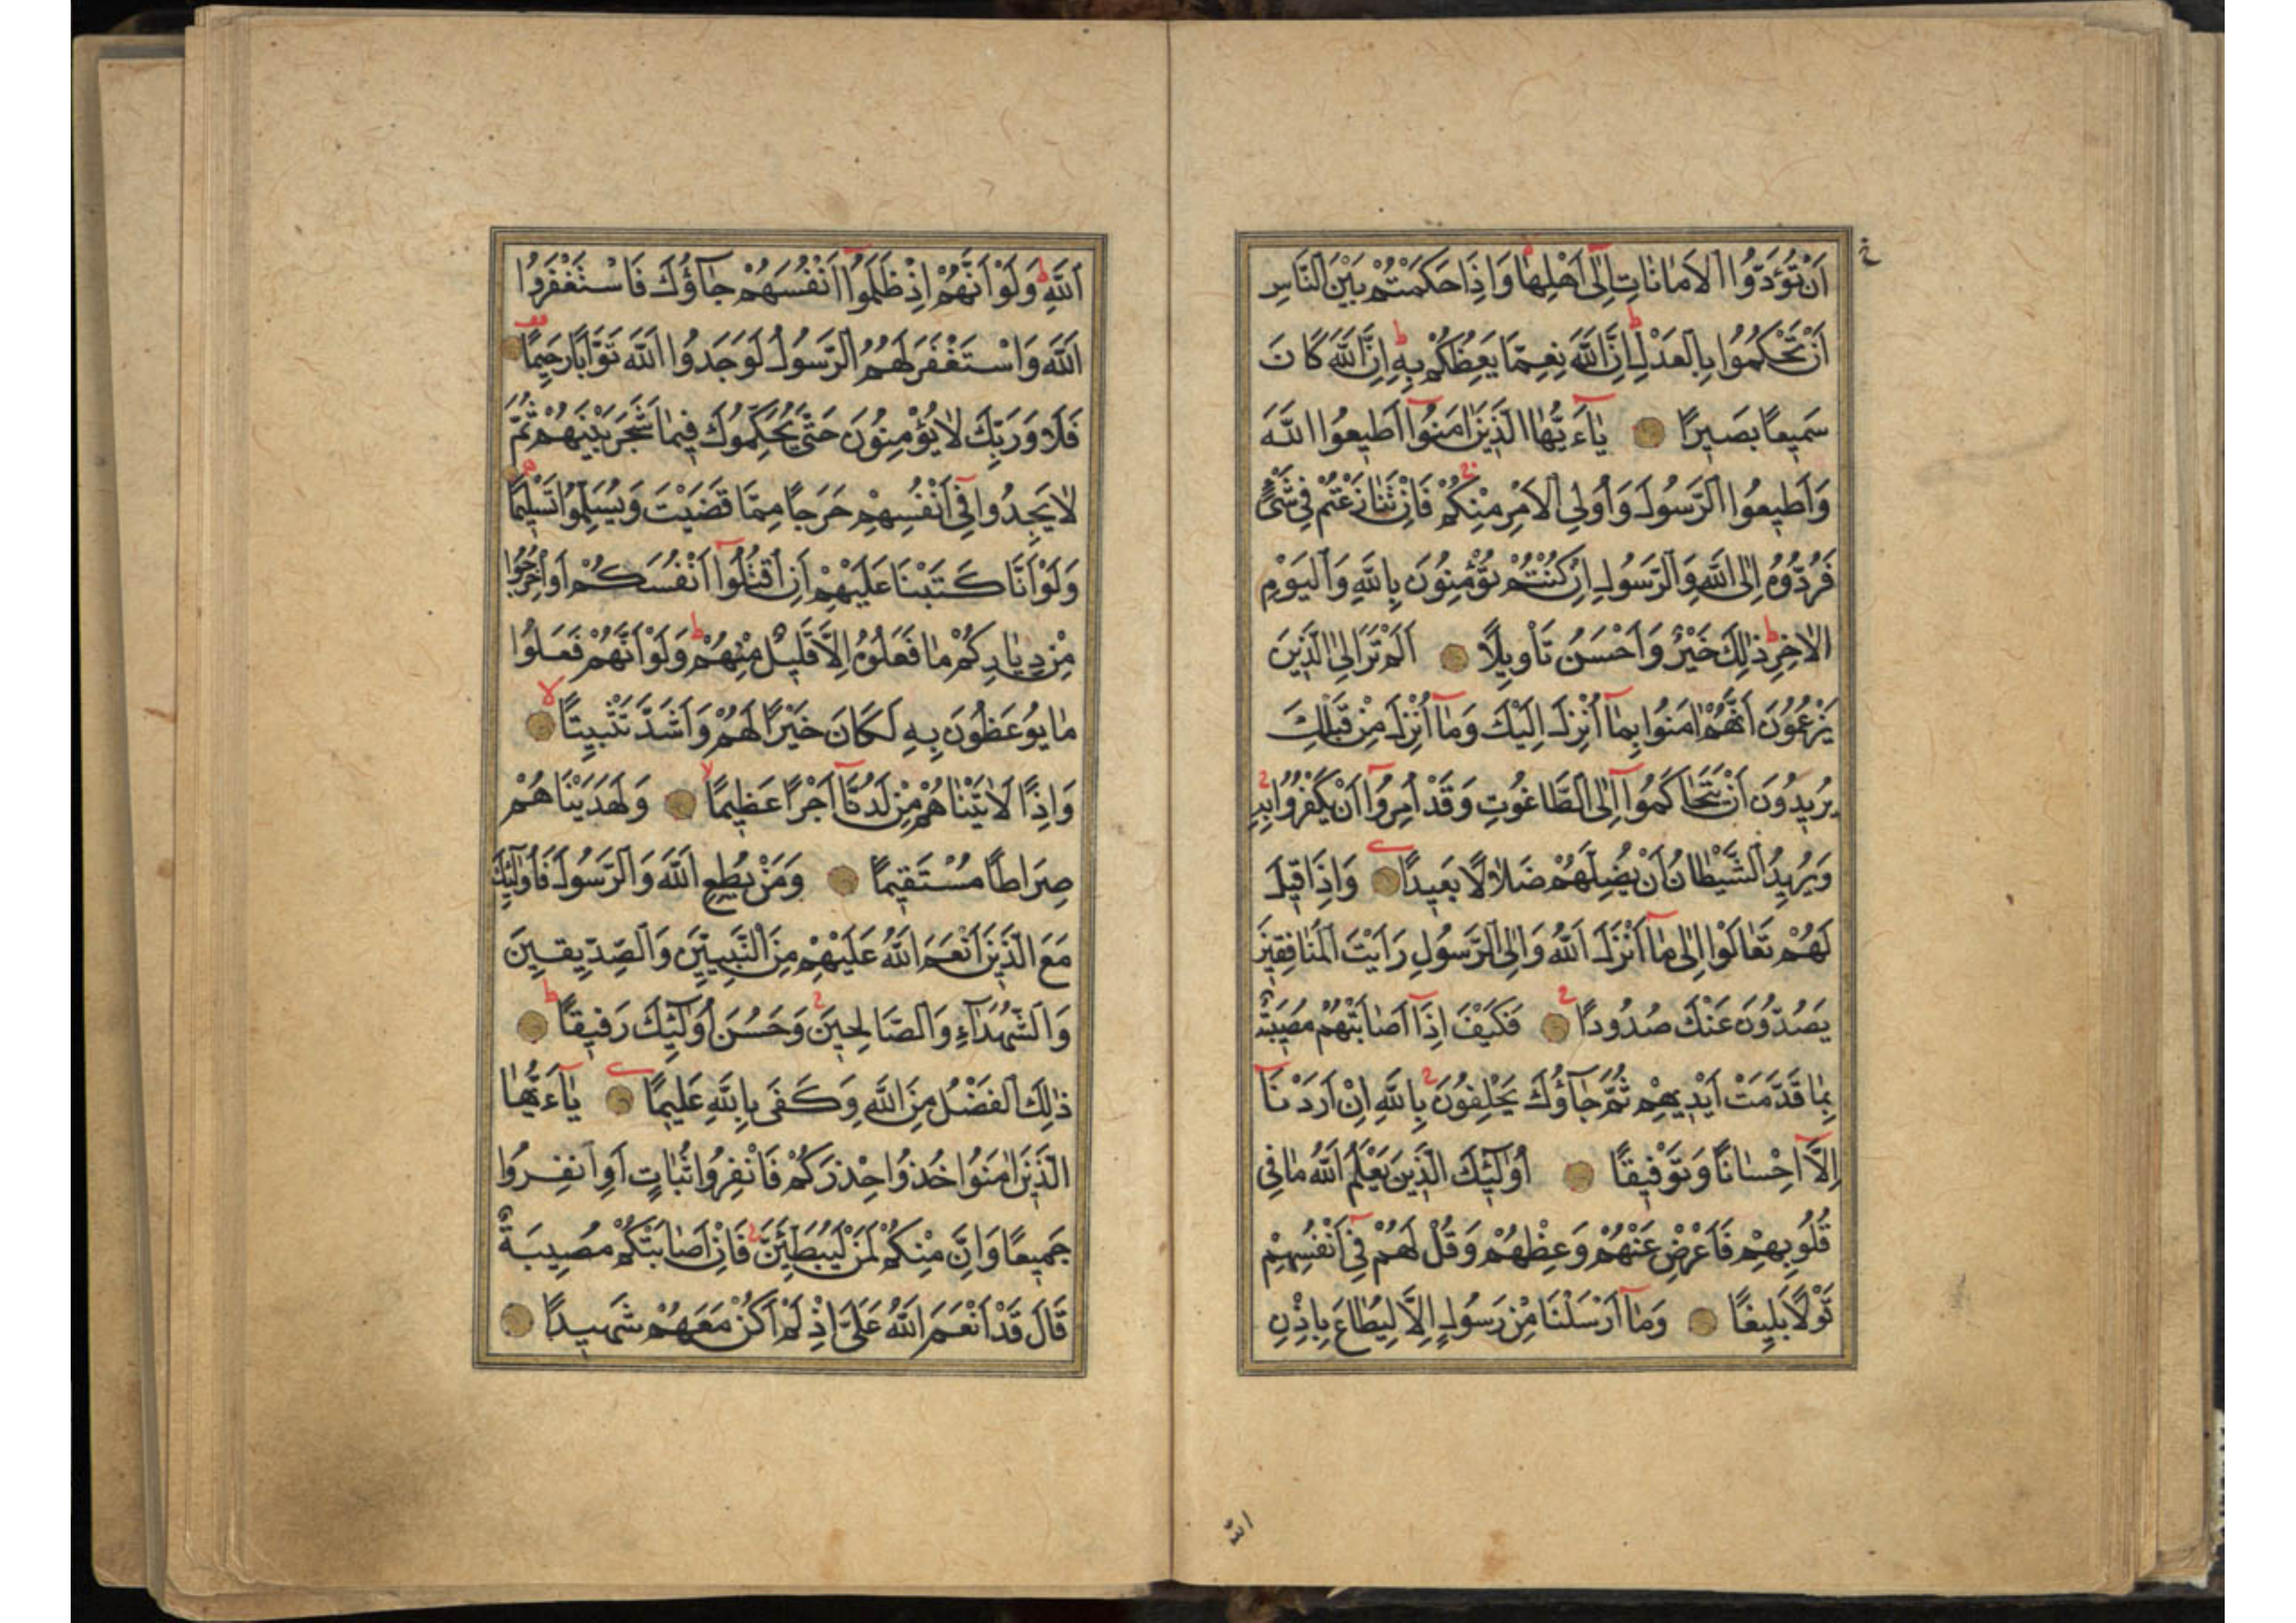 اَنْ تُؤَدُّوا الْاَمَانَاتِ اِلٰٓى اَهْلِهَا وَاِذَا حَكَمْتُمْ بَيْنَ النَّاسِ
اَنْ تَحْكُمُوا بِالْعَدْلِ اِنَّ اللّٰهَ نِعِمَّا يَعِظُكُمْ بِهِ اِنَّ اللّٰهَ كَانَ
سَمِيعًا بَصِيرًا يَآءَيُّهَا الَّذِينَ اٰمَنُوٓا اَطِيعُوا اللّٰهَ
وَاَطِيعُوا الرَّسُولَ وَاُولِي الْاَمْرِ مِنْكُمْ فَاِنْ تَنَازَعْتُمْ فِي شَيْءٍ
فَرُدُّوهُ اِلَى اللّٰهِ وَالرَّسُولِ اِنْ كُنْتُمْ تُؤْمِنُونَ بِاللّٰهِ وَالْيَوْمِ
الْاٰخِرِ ذٰلِكَ خَيْرٌ وَاَحْسَنُ تَاْوِيلًا اَلَمْ تَرَ اِلَى الَّذِينَ
يَزْعُمُونَ اَنَّهُمْ اٰمَنُوا بِمَآ اُنْزِلَ اِلَيْكَ وَمَآ اُنْزِلَ مِنْ قَبْلِكَ
يُرِيدُونَ اَنْ يَتَحَاكَمُوٓا اِلَى الطَّاغُوتِ وَقَدْ اُمِرُوٓا اَنْ يَكْفُرُوا بِهِ
وَيُرِيدُ الشَّيْطَانُ اَنْ يُضِلَّهُمْ ضَلَالًا بَعِيدًا وَاِذَا قِيلَ
لَهُمْ تَعَالَوْا اِلٰى مَآ اَنْزَلَ اللّٰهُ وَاِلَى الرَّسُولِ رَاَيْتَ الْمُنَافِقِينَ
يَصُدُّونَ عَنْكَ صُدُودًا فَكَيْفَ اِذَآ اَصَابَتْهُمْ مُصِيبَةٌ
بِمَا قَدَّمَتْ اَيْدِيهِمْ ثُمَّ جَآؤُكَ يَحْلِفُونَ بِاللّٰهِ اِنْ اَرَدْنَآ
اِلَّآ اِحْسَانًا وَتَوْفِيقًا اُولٰٓئِكَ الَّذِينَ يَعْلَمُ اللّٰهُ مَا فِي
قُلُوبِهِمْ فَاَعْرِضْ عَنْهُمْ وَعِظْهُمْ وَقُلْ لَهُمْ فِيٓ اَنْفُسِهِمْ
قَوْلًا بَلِيغًا وَمَآ اَرْسَلْنَا مِنْ رَسُولٍ اِلَّا لِيُطَاعَ بِاِذْنِ
اللّٰهِ وَلَوْ اَنَّهُمْ اِذْ ظَلَمُوٓا اَنْفُسَهُمْ جَآؤُكَ فَاسْتَغْفَرُوا
اللّٰهَ وَاسْتَغْفَرَ لَهُمُ الرَّسُولُ لَوَجَدُوا اللّٰهَ تَوَّابًا رَحِيمًا
فَلَا وَرَبِّكَ لَا يُؤْمِنُونَ حَتّٰى يُحَكِّمُوكَ فِيمَا شَجَرَ بَيْنَهُمْ ثُمَّ
لَا يَجِدُوا فِيٓ اَنْفُسِهِمْ حَرَجًا مِمَّا قَضَيْتَ وَيُسَلِّمُوا تَسْلِيمًا
وَلَوْ اَنَّا كَتَبْنَا عَلَيْهِمْ اَنِ اقْتُلُوٓا اَنْفُسَكُمْ اَوِ اخْرُجُوا
مِنْ دِيَارِكُمْ مَا فَعَلُوهُ اِلَّا قَلِيلٌ مِنْهُمْ وَلَوْ اَنَّهُمْ فَعَلُوا
مَا يُوعَظُونَ بِهِ لَكَانَ خَيْرًا لَهُمْ وَاَشَدَّ تَثْبِيتًا
وَاِذًا لَاٰتَيْنَاهُمْ مِنْ لَدُنَّآ اَجْرًا عَظِيمًا وَلَهَدَيْنَاهُمْ
صِرَاطًا مُسْتَقِيمًا وَمَنْ يُطِعِ اللّٰهَ وَالرَّسُولَ فَاُولٰٓئِكَ
مَعَ الَّذِينَ اَنْعَمَ اللّٰهُ عَلَيْهِمْ مِنَ النَّبِيّينَ وَالصِّدِّيقِينَ
وَالشُّهَدَآءِ وَالصَّالِحِينَ وَحَسُنَ اُولٰٓئِكَ رَفِيقًا
ذٰلِكَ الْفَضْلُ مِنَ اللّٰهِ وَكَفَى بِاللّٰهِ عَلِيمًا يَآءَيُّهَا
الَّذِينَ اٰمَنُوا خُذُوا حِذْرَكُمْ فَانْفِرُوا ثُبَاتٍ اَوِ انْفِرُوا
جَمِيعًا وَاِنَّ مِنْكُمْ لَمَنْ لَيُبَطِّئَنَّ فَاِنْ اَصَابَتْكُمْ مُصِيبَةٌ
قَالَ قَدْ اَنْعَمَ اللّٰهُ عَلَيَّ اِذْ لَمْ اَكُنْ مَعَهُمْ شَهِيدًا